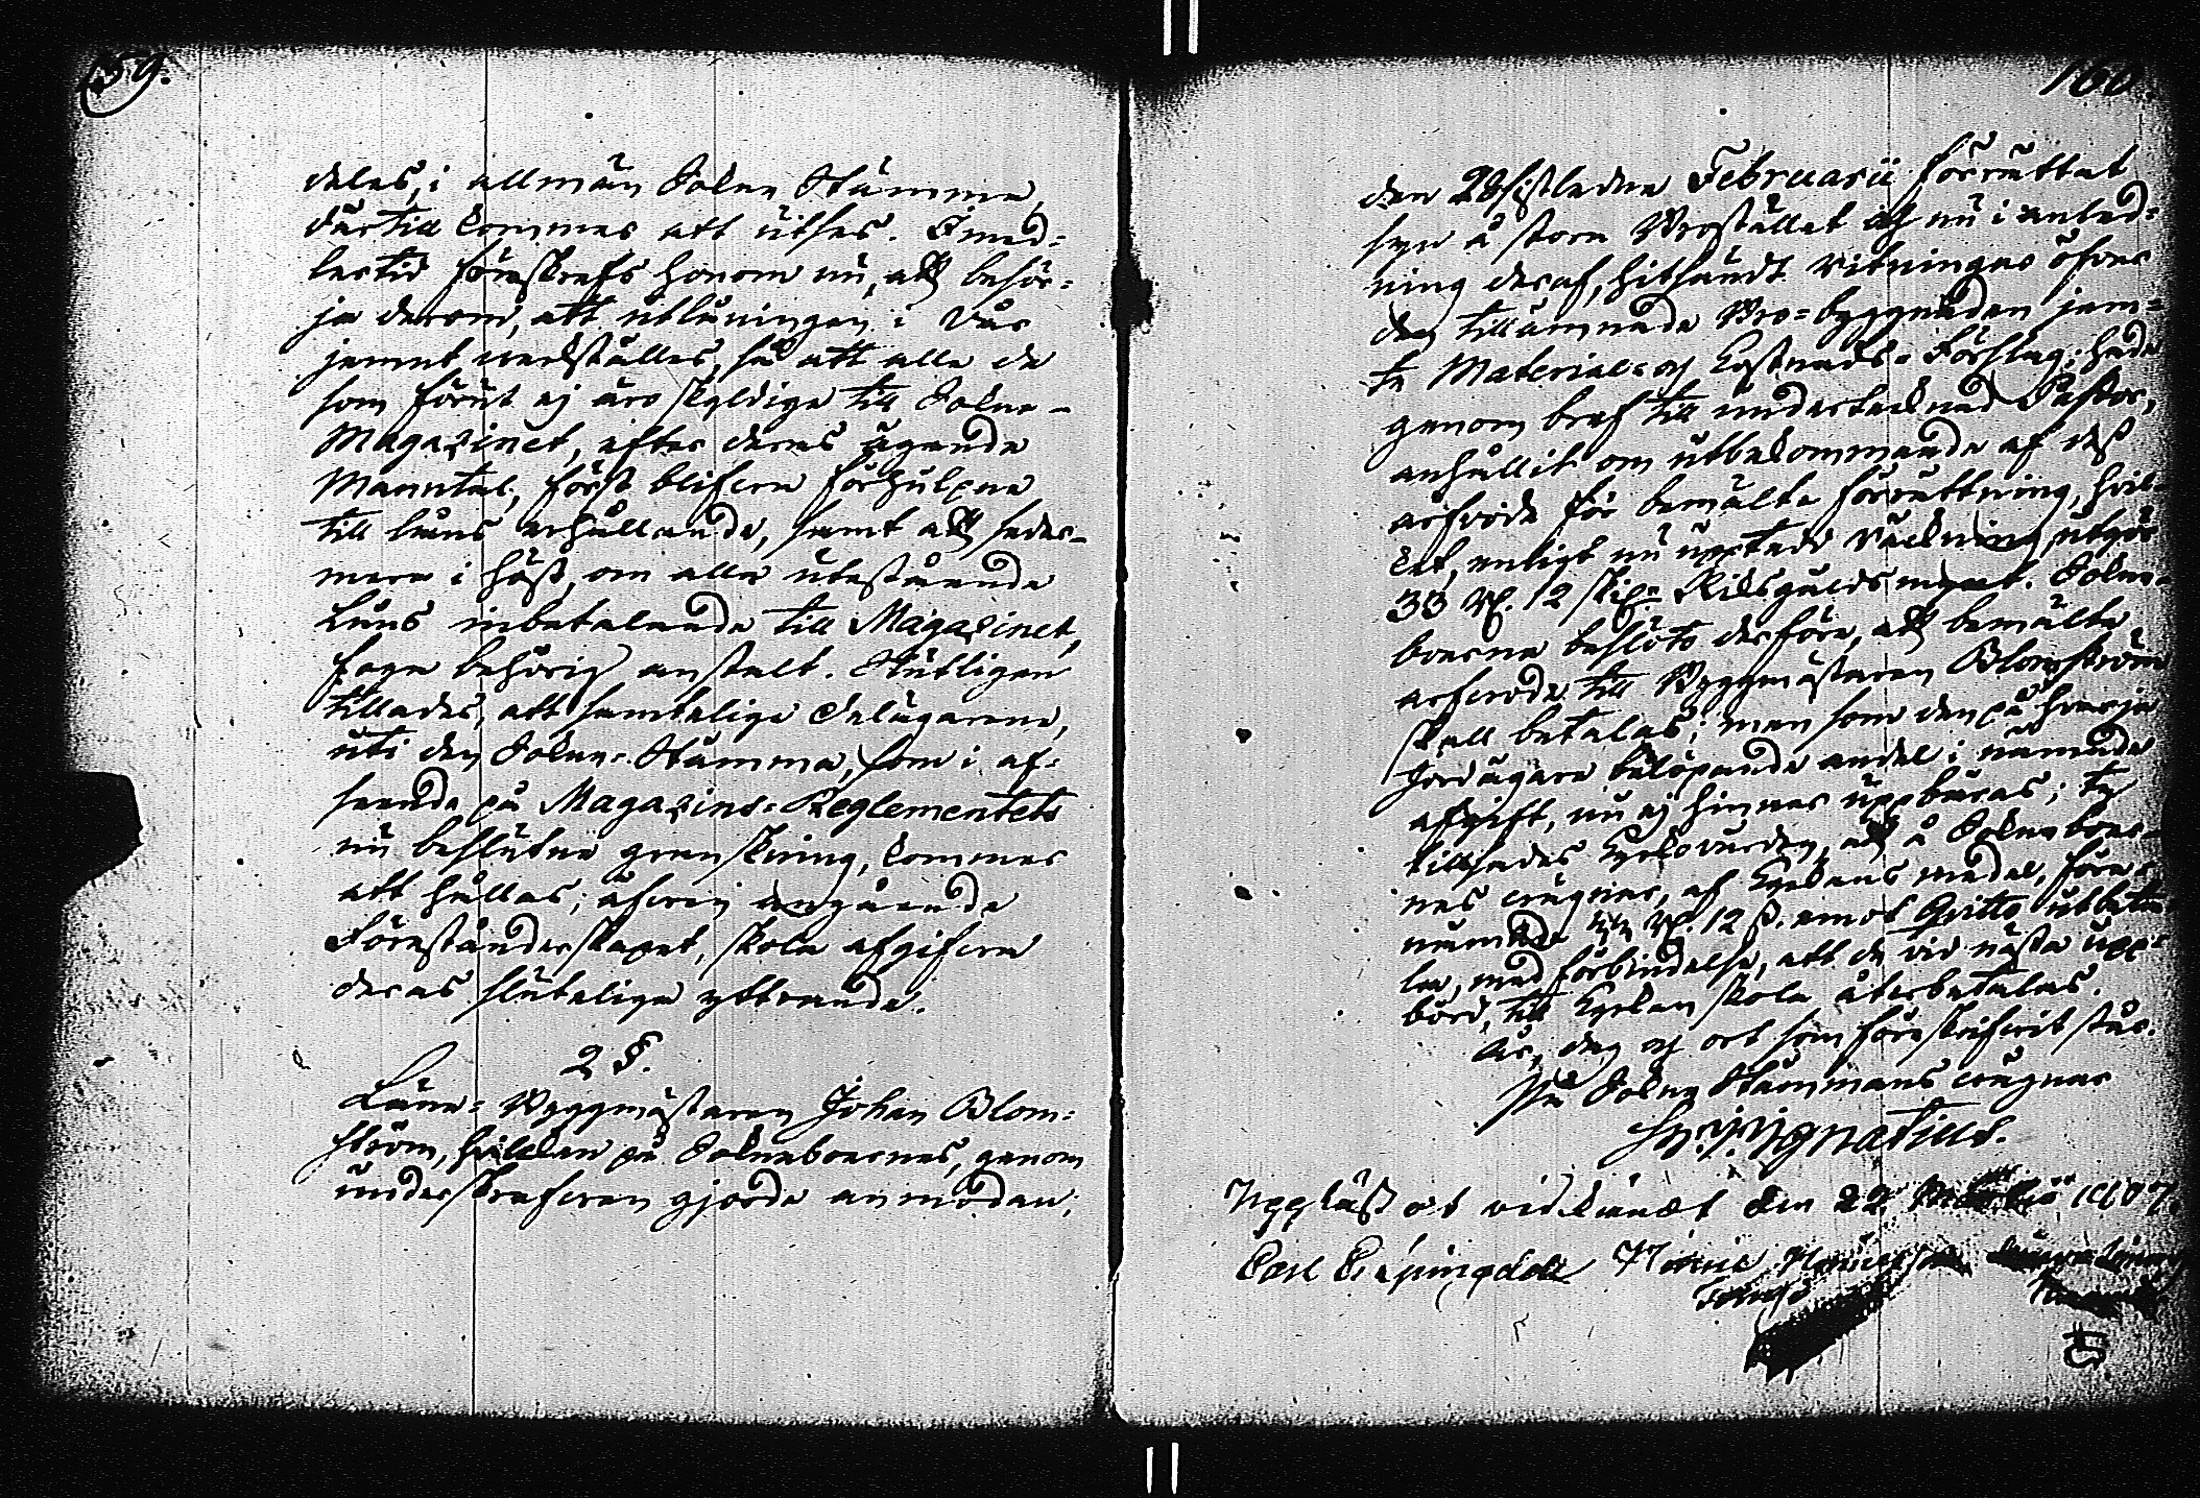 159.
deles, i allmän Sokne Stämma,
därtill kommer att utses. Imed-
lertid föreskrefs honom nu, att besör-
ja derom, att utlåningen i vår
jemnt verkställes, så att alla de
som förut ej äro skyldige till Sokne-
Magazinet, efter deras egande
Manntal, först blifva förhulpne
till låns erhållande, samt att seder-
mera i höst, om alla utestående
Låns inbetalande till Magazinet,
foga behörig anstalt. Slutligen
tillades, att samtelige Delägarene,
uti den Sokne-Stämma, som i af-
seende på Magazins-Reglementets
nu beslutne granskning, kommer
att hållas; äfven angående
Föreståndarskapet, skola afgifva
deras slutelige yttrande.
2 §.
Läne-Byggmästaren Johan Blom-
ström, hvilken på Sokneboernes, genom
underskrefven gjorde anmodan,
160.
den 28 sistledne Februarii förrättat
syn å stora Brostället och nu i anled-
ning deraf, hitsändt ritningar öfver
den tillämnade Bro-byggnaden jem-
te Material- och Kostnads-Förslag; hade
genom bref till undertecknad Pastor,
anhållit om utbekommande af dess
arfvode för bemälte förrättning, hvil-
ket, enligt nu upptedd räckning utgör
33 Rd. 12 skil: Riksgälds mynt. Sokne-
boerne beslöto derföre, att bemälte
arfvode till Byggmästaren Blomström
skall betalas; men som den på hvarje
Jordägare belöpande andel i nämnde
afgift, nu ej hinner uppbäras; ty
tillsades Kyrkovärden, att å Sokneboer-
nes vägnar, af Kyrkans medel, före-
nämnde 33 Rd. 12 s. emot Qvitto utbeta-
la, med förbindelse, att de vid nästa upp-
börd, till Kyrkan skola återbetalas.
År, dag och ort som föreskrifvit står.
På Sokne Stämmans vägnar
Ignatius.
Uppläst ock vidkändt den 22 Martii 1807.
Carl